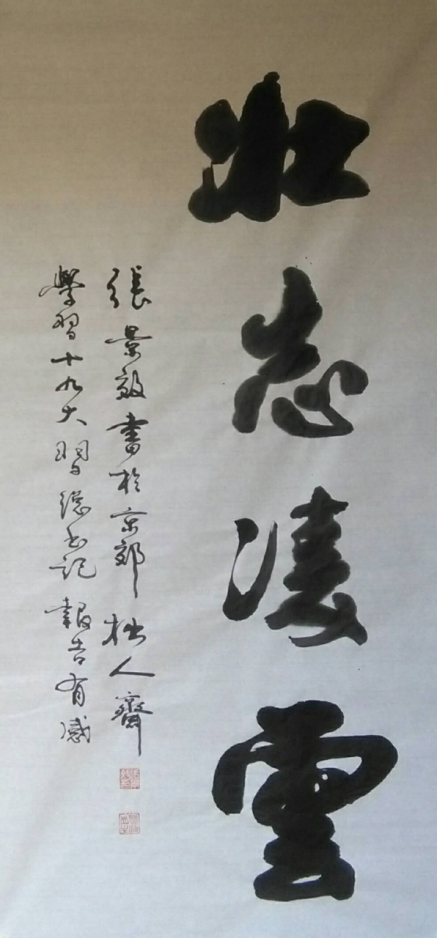 壯志凌雲
張景敏書於京郊拙人齋
學習十九大習總書記報告有感